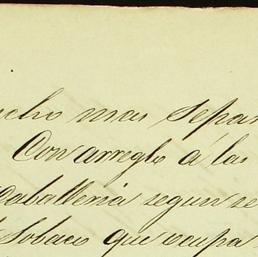 cho mas separ
Con arreglo á las
Caballeria segun se
Sobaco que ocupa